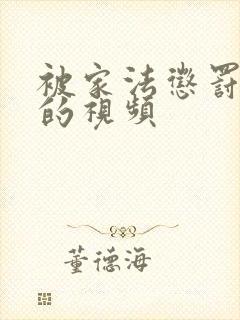 被家法懲罰
的視頻
董德海